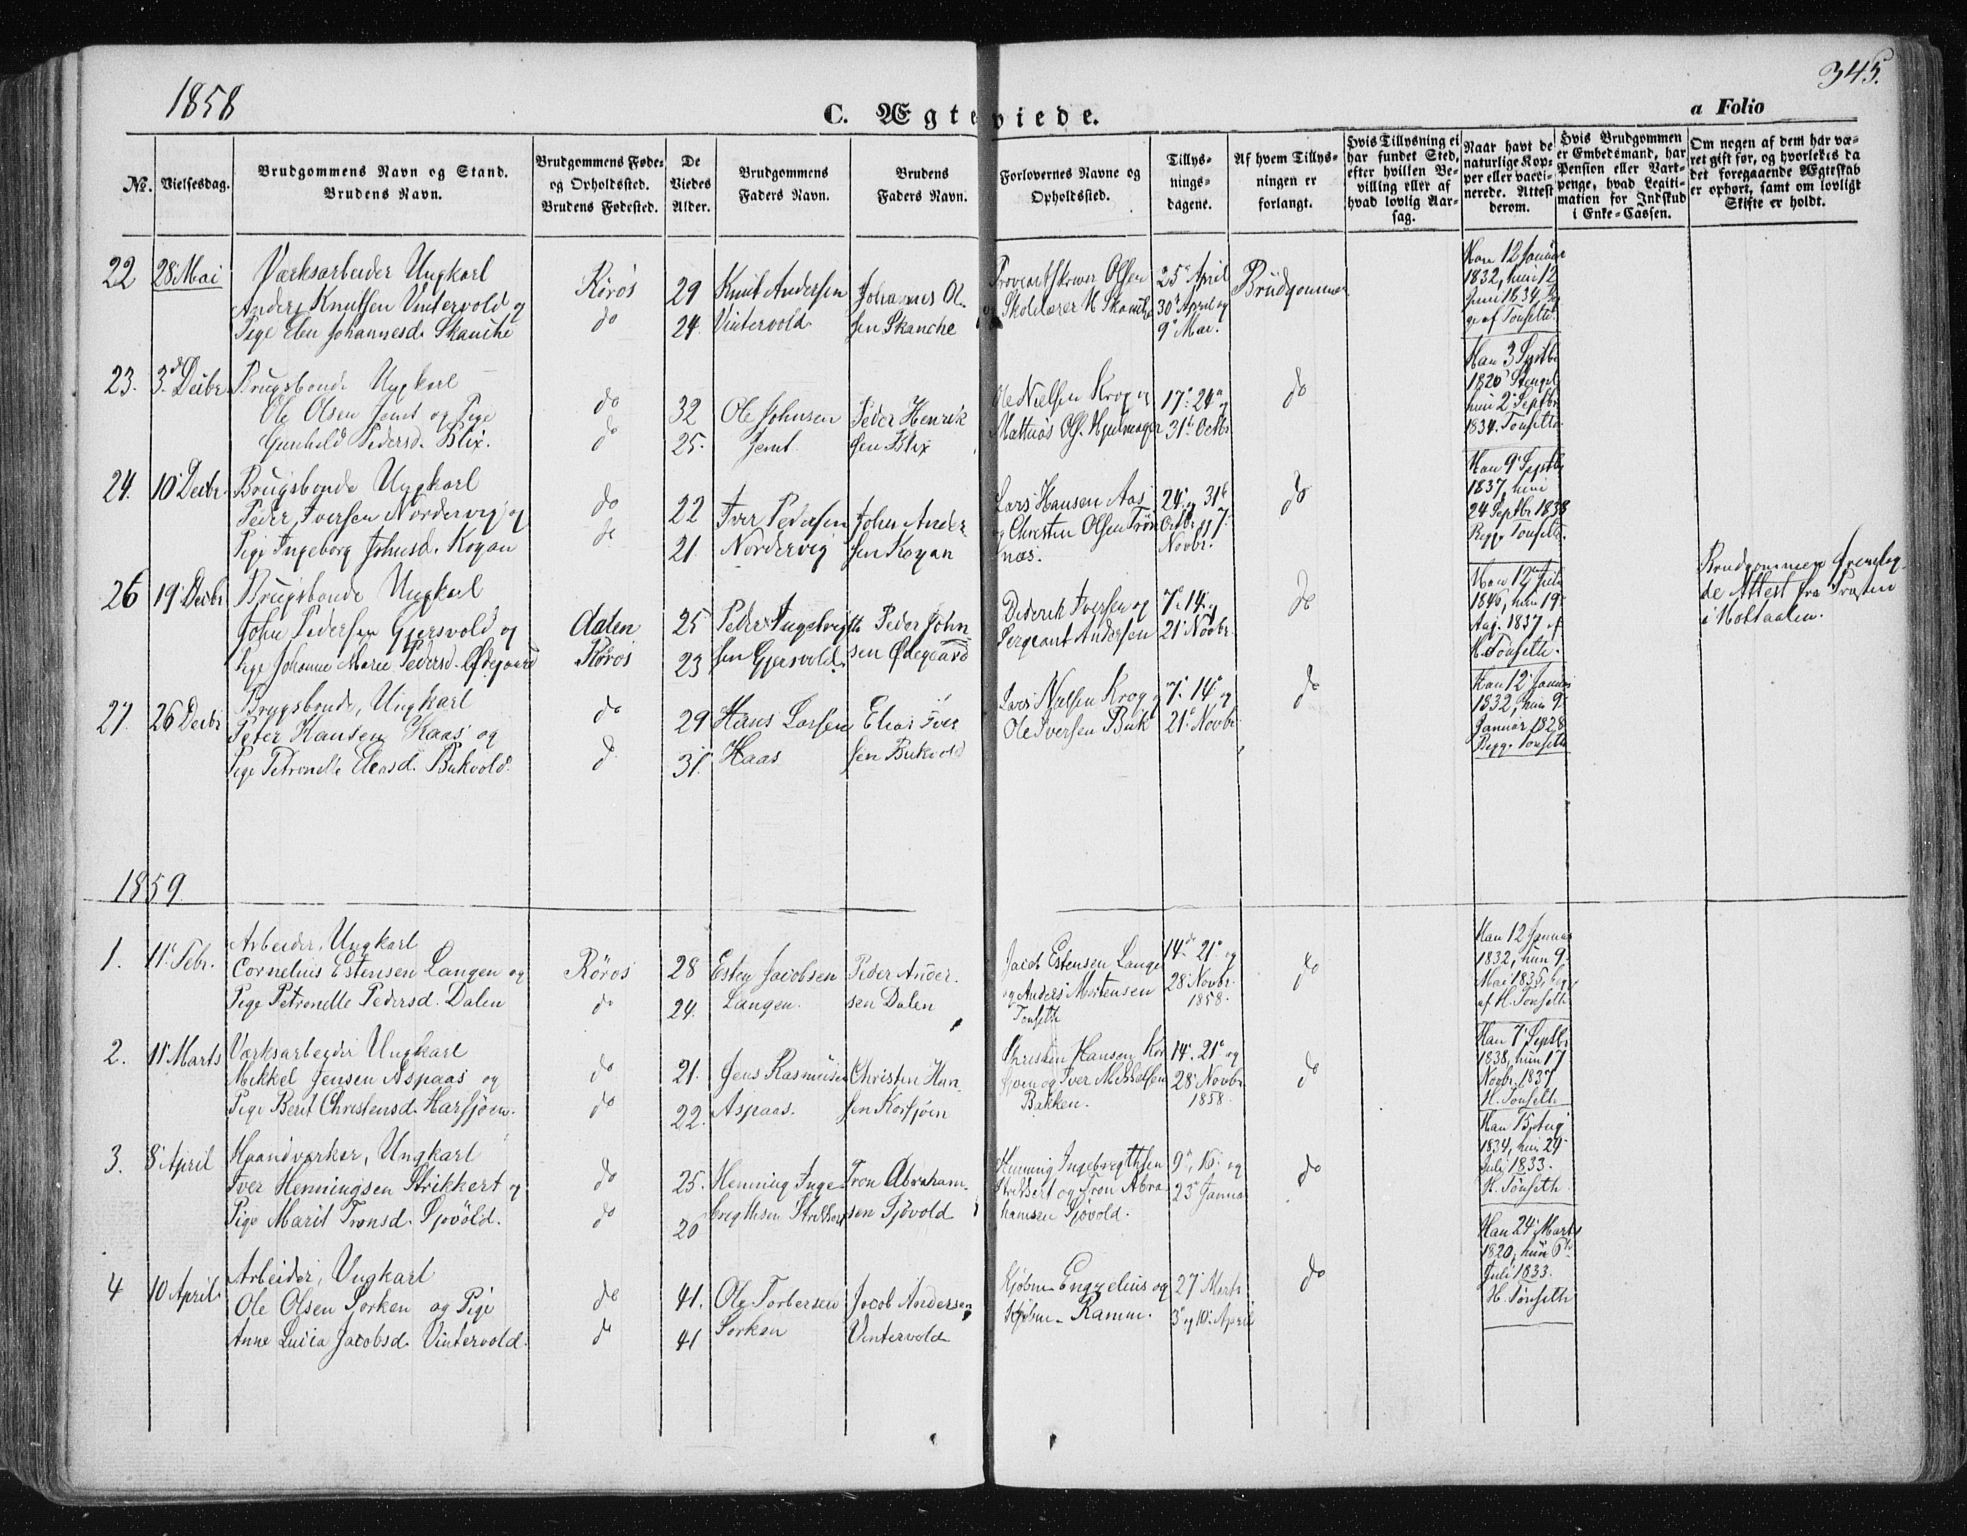 1858
345.
C. Ægteviede.
a Folio
No.
Vielsesdag.
Brudgommens Navn og Stand.
Brudens Navn.
Brudgommens Føde-
og Opholdssted.
Brudens Fødested.
De
Viedes
Alder.
Brudgommens
Faders Navn.
Brudens
Faders Navn.
Forlovernes Navne og
Opholdssted.
Tillys-
nings-
dagene.
Af hvem Tillys-
ningen er
forlangt.
Hvis Tillysning ei
har fundet Sted,
efter hvilken Be-
villing eller af
hvad lovlig Aar-
sag.
Naar havt de
naturlige Kop-
per eller vacci-
nerede. Attest
derom.
Hvis Brudgommen
er Embedsmand, har
Pension eller Vart-
penge, hvad Legiti-
mation for Indskud
i Enke-Cassen.
Om nogen af dem har væ-
ret gift før, og hvorledes da
det foregaaende Ægteskab
er ophørt, samt om lovligt
Skifte er holdt.
22 28 Mai Værksarbeider Ungkarl Røros 29 Knut Andersen Johannes Ol- Proviantskriver Olsen 25 April Brudgommen
Anders Knutsen Vintervold og do 24. Vintervold sen Skanche og Skolelærer H Skanche 30 April og
Pige Elen Johannesd. Skanche 9 Mai.
Han 12 Januar
1832, hun 12
Juni 1834
af Tønseth
23. 3d Decbr Brugsbonde Ungkarl do 32 Ole Johnsen Peder Henrik Ole Nielsen Krog og 17. 24 og do
Ole Olsen Jemt og Pige do 25. Jemt sen Blix Matthias Ols. Hjulmager 31 Octbr
Gunhild Pedersd. Blix.
Han 3 Septbr
1820
hun 2 Septbr
1834. Tønseth
24. 10 Decbr Brugsbonde Ungkarl do 22 Iver Pedersen John Ander Lars Hansen Aas 24 og 31t do
Peder Iversen Nordervig og do 21 Nordervig sen Kojan og Christen Olsen Trøn Octbr og 7
Pige Ingeborg Johnsd. Kojan næs. Novbr.
Han 9 Septbr
1837, hun
24 Septbr 1838
Begge Tønseth.
26 19 Decbr Brugsbonde Ungkarl Aalen 25 Peder Ingebrigts Peder John- Diderik Iversen og 7. 14. og do
John Pedersen Gjersvold og Røros 23 sen Gjersvold. sen Ødegaard Sergeant Andersen 21 Novbr.
Pige Johanne Marie Pedersd. Ødegaard
Han 12 Juli
1846, hun 19
Aug. 1837 af
H. Tønseth.
Brudgommen fremlag-
de Attest fra Præsten
i Holtaalen.
27. 26 Decbr Brugsbonde, Ungkarl do 29 Hans Larsen Elias Iver Lars Nielsen Krog og 7. 14 og do
Peter Hansen Haas og do 31. Haas sen Bukvold Ole Iversen Buk 21 Novbr
Pige Petronelle Eliasd. Bukvold.
Han 12 Januar
1832, hun 9
Januar 1828
Begge Tønseth
1859
1. 11 Febr. Arbeider, Ungkarl Røros 28 Esten Jacobsen Peder Ander Jacob Estensen Lange 14de 21 og do
Cornelius Estensen Langen og do 24. Langen. sen Dalen og Anders Mortensen 28 Novbr.
Pige Petronelle Pedersd. Dalen Tønseth 1858.
Han 12 Januar
1832, hun 9
Mai 1835, begge
af H. Tønseth
2. 11 Marts Værksarbeider Ungkarl do 21. Jens Rasmusen Christen Han- Christen Hansen Kor 14. 21 og do
Mikkel Jensen Aspaas og do 22. Aspaas. sen Korsjøen sjøen og Iver Mikkelsen 28 Novbr
Pige Berit Christensd. Harsjøen. Bakken. 1858.
Han 7 Septbr
1838, hun 17
Novbr. 1837
H. Tønseth
3. 8 April Haandværker, Ungkarl do 25. Henning Inge Tron Abraham- Henning Ingebregthsen 9, 16. og do
Iver Henningsen Strikkert og do 20 bregthsen Strikkert sen Sjøvold Strikkert og Tron Abra 23 Janua
Pige Marit Tronsd. Sjøvold. hamsen Sjøvold.
Han 15 Aug
1834, hun 24
Juli 1833.
H. Tønseth
4 10 April. Arbeider, Ungkarl do 41. Ole Torbersen Jacob Andersen Kjøbm. Engzelius og 27 Marts do
Ole Olsen Sorken og Pige do 41 Sorken Vintervold Kjøbm. Ramm. 3 og 10. April
Anne Lucia Jacobsd. Vintervold.
Han 24 Marts
1820, hun 6te
Juli 1833.
H. Tønseth